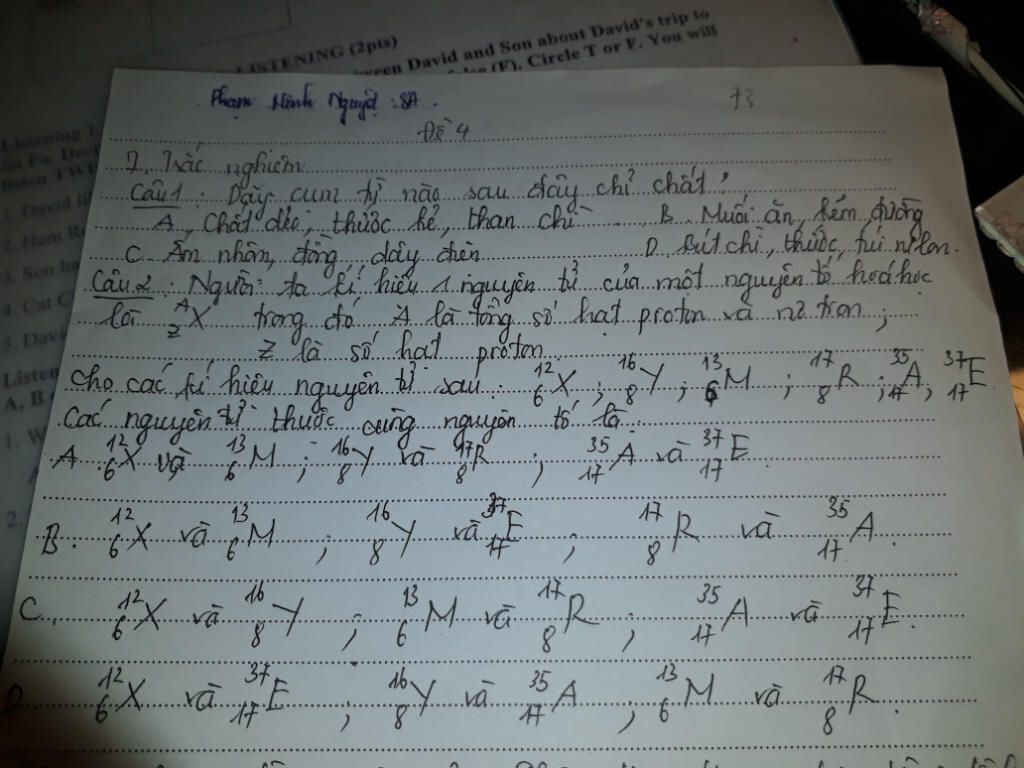 LISTENING (2pts)
between David and Son about David's trip to
(F). Circle T or F. You will
Listening 1.
Sa Pa. Deci
listen TWI
1. David li
2. Ham R
3. Son ha
4. Cat C
5. Davi
Listen
A, B
1. W
2.
Phạm Minh Nguyệt : 8A.
73
Đề 4
I, Trắc nghiệm
Câu 1 : Dãy cụm từ nào sau đây chỉ chất?
A, Chất dẻo, thước kẻ, than chì B. Muối ăn, kẽm, đường
C. Ấm nhôm, đồng, dây điện D. bút chì, thước, túi nilon.
Câu 2 : Người ta kí hiệu 1 nguyên tử của một nguyên tố hoá học
là ᴬ_Z X trong đó A là tổng số hạt proton và nơ tron ;
Z là số hạt proton
Cho các kí hiệu nguyên tử sau : ¹²₆X ; ¹⁶₈Y ; ¹³₆M ; ¹⁷₈R ; ³⁵₁₇A, ³⁷₁₇E
Các nguyên tử thuộc cùng nguyên tố là :
A ¹²₆X và ¹³₆M ; ¹⁶₈Y và ¹⁷₈R ; ³⁵₁₇A và ³⁷₁₇E
B. ¹²₆X và ¹³₆M ; ¹⁶₈Y và ³⁷₁₇E ; ¹⁷₈R và ³⁵₁₇A.
C. ¹²₆X và ¹⁶₈Y ; ¹³₆M và ¹⁷₈R ; ³⁵₁₇A và ³⁷₁₇E.
D. ¹²₆X và ³⁷₁₇E ; ¹⁶₈Y và ³⁵₁₇A ; ¹³₆M và ¹⁷₈R.